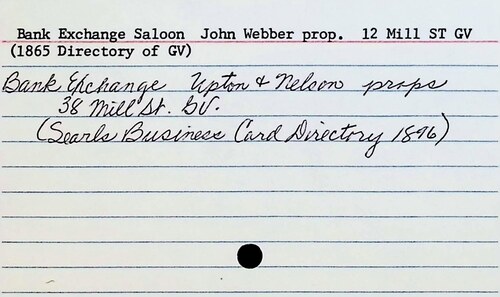 Bank Exchange Saloon John Webber prop. 12 Mill ST GV
(1865 Directory of GV)
Bank Exchange Upton & Nelson props
38 Mill St. GV.
(Searls Business Card Directory 1896)